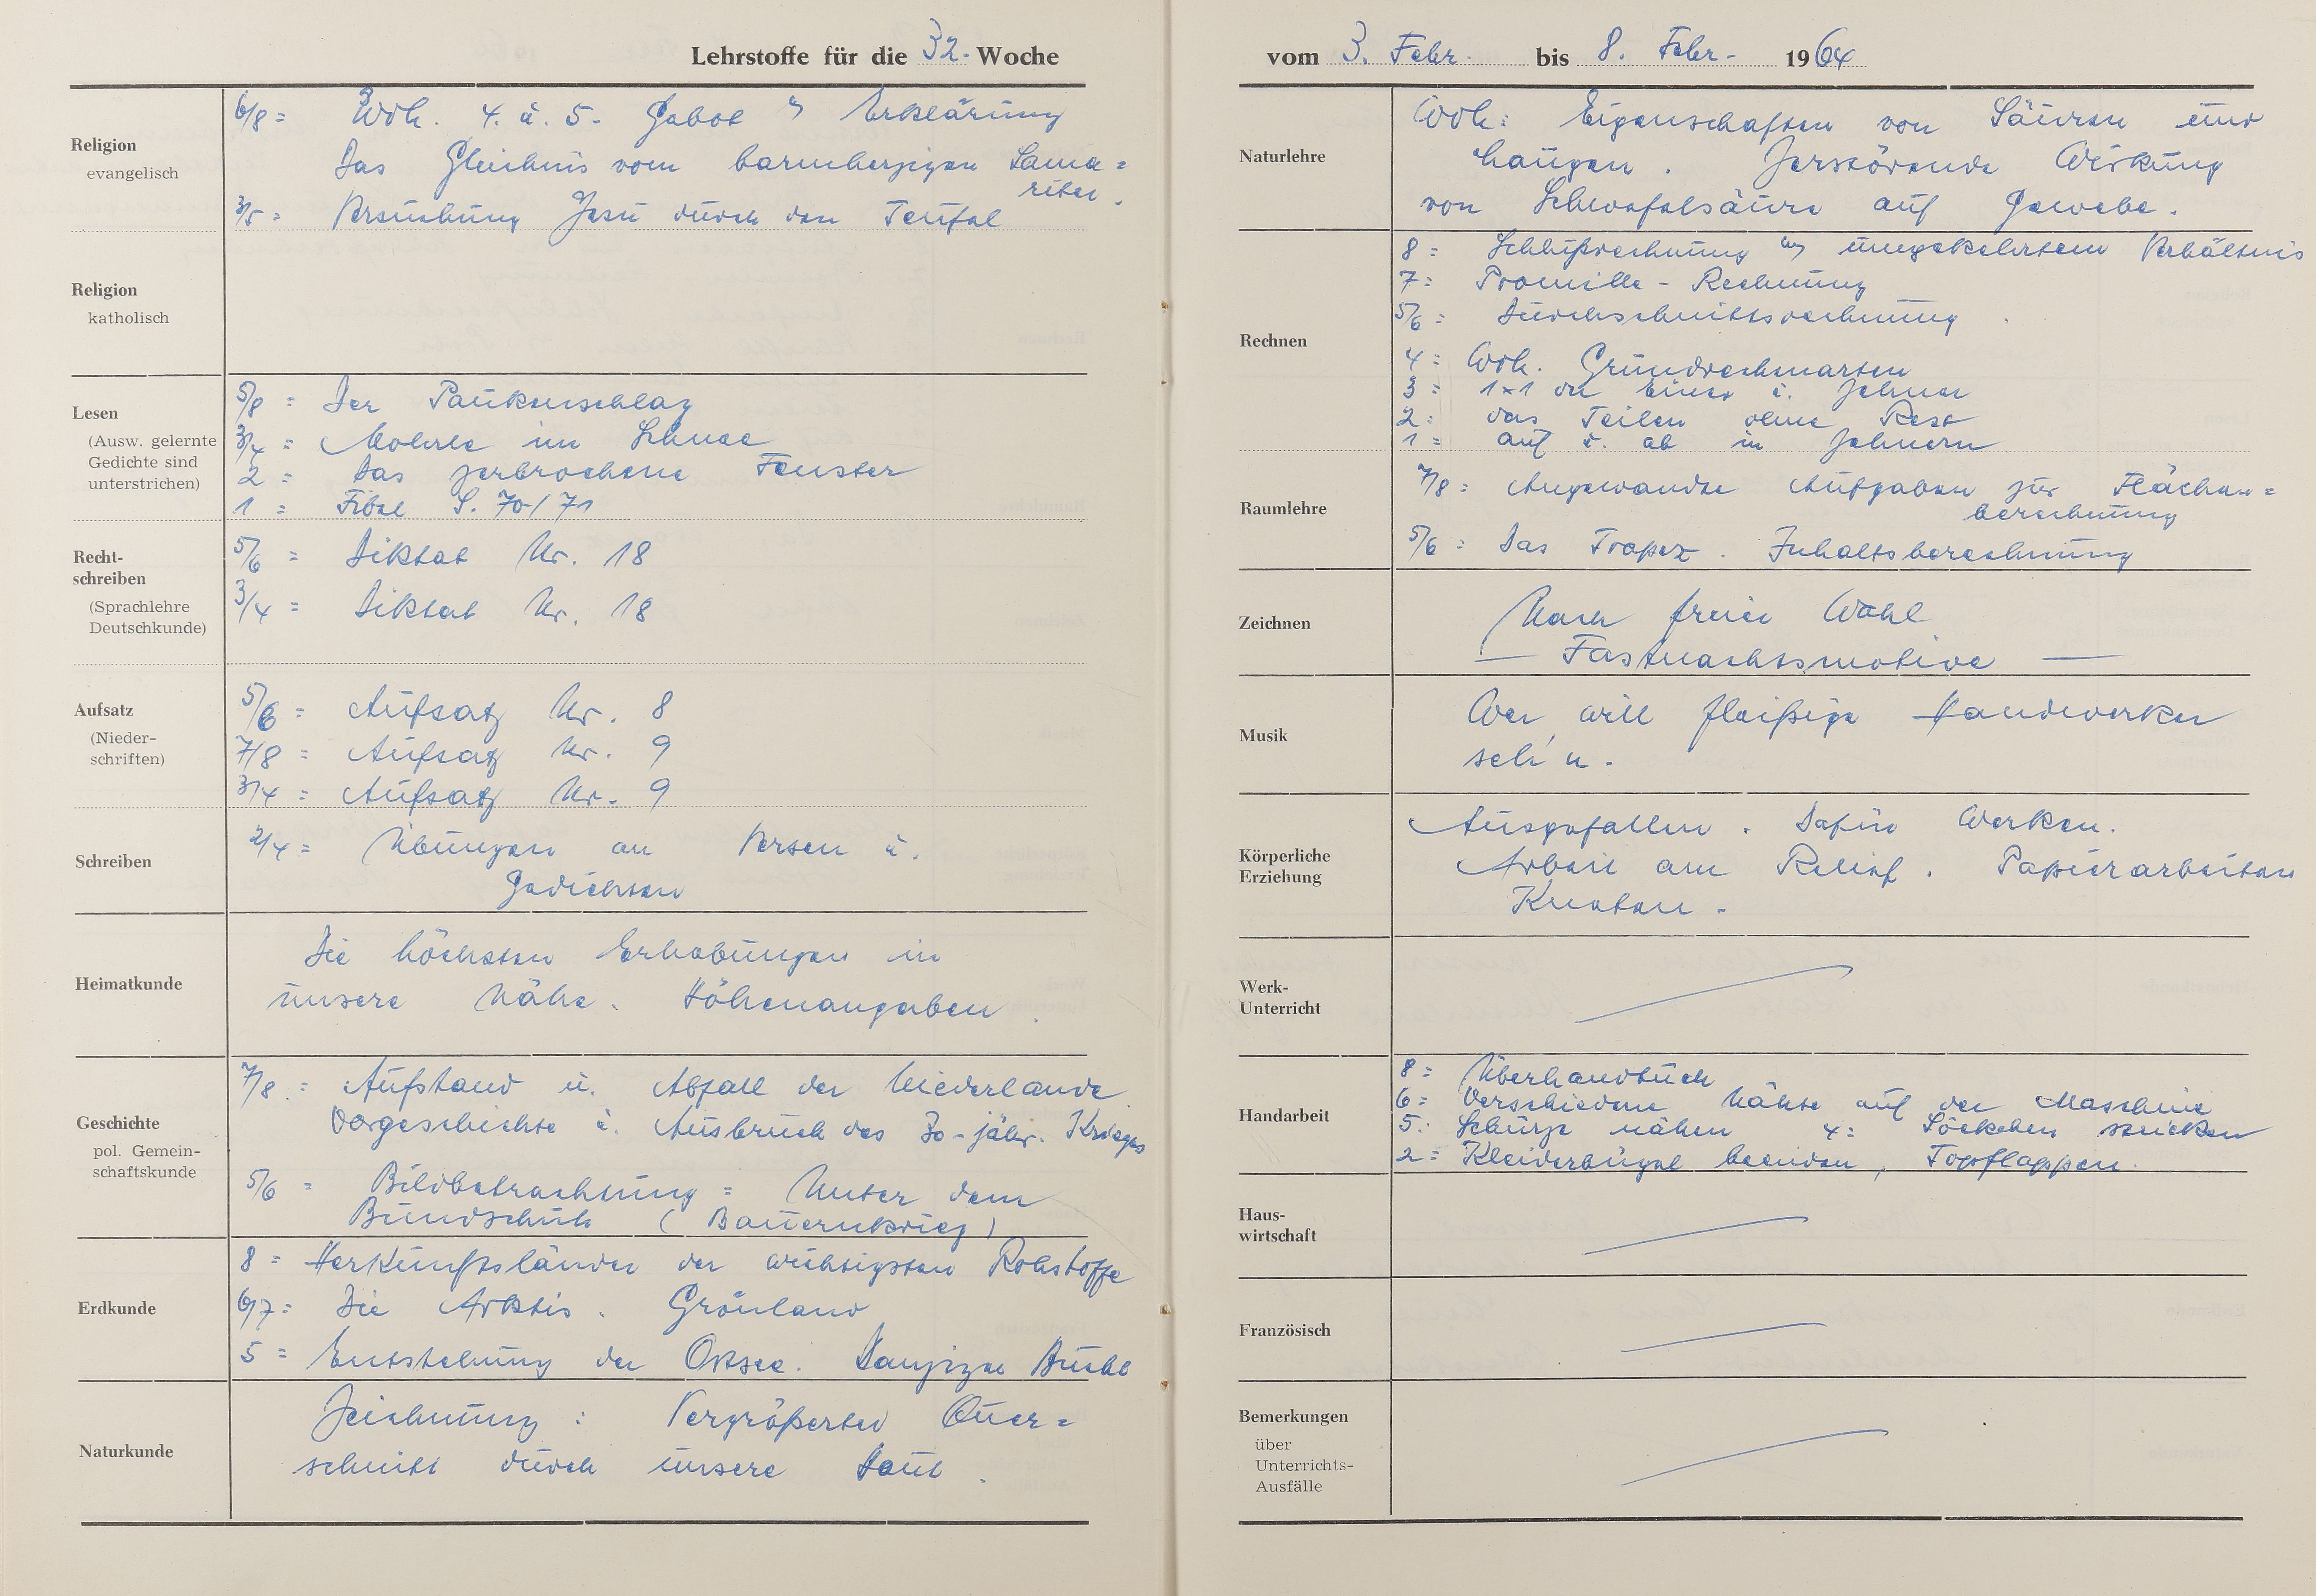 Lehrstoffe für die 32. Woche
Religion
evangelisch
6/8 = Wdh. 4. u. 5. Gebot m Erklärung
Das Gleichnis vom barmherzigen Sama=
riter.
3/5 = Versuchung Jesu durch den Teufel
Religion
katholisch
Lesen
(Ausw. gelernte
Gedichte sind
unterstrichen)
5/8 = Der Paukenschlag
3/4 = Mohrle im Schnee
2 = Das zerbrochene Fenster
1 = Fibel S. 70/71
Recht-
schreiben
(Sprachlehre
Deutschkunde)
5/6 = Diktat Nr. 18
3/4 = Diktat Nr. 18
Aufsatz
(Nieder-
schriften)
5/6 = Aufsatz Nr. 8
7/8 = Aufsatz Nr. 9
3/4 = Aufsatz Nr. 9
Schreiben
2/4 = Übungen an Versen u.
Gedichten
Heimatkunde
Die höchsten Erhebungen in
unsere Nähe. Höhenangaben.
Geschichte
pol. Gemein-
schaftskunde
7/8 = Aufstand u. Abfall der Niederlande
Vorgeschichte u. Ausbruch des 30-jähr. Krieges
5/6 = Bildbetrachtung = Unter dem
Bundschuh (Bauernkrieg)
Erdkunde
8 = Herkunftsländer der wichtigsten Rohstoffe
6/7 = Die Arktis. Grönland
5 = Entstehung der Ostsee. Danziger Bucht
Naturkunde
Zeichnung: Vergrößerter Quer=
schnitt durch unsere Haut.
vom 3. Febr. bis 8. Febr. 1964
Naturlehre
Wdh: Eigenschaften von Säuren und
Laugen. Zerstörende Wirkung
von Schwefelsäure auf Gewebe.
Rechnen
8 = Schlußrechnung m umgekehrtem Verhältnis
7 = Promille-Rechnung
5/6 = Durchschnittsrechnung
4 = Wdh. Grundrechenarten
3 = 1x1 der Einer u. Zehner
2 = das Teilen ohne Rest
1 = auf u. ab in Zehnern
Raumlehre
7/8 = Angewandte Aufgaben zur Flächen=
berechnung
5/6 = Das Trapez. Inhaltsberechnung
Zeichnen
Nach freier Wahl
— Fastnachtsmotive —
Musik
Wer will fleißige Handwerker
seh'n.
Körperliche
Erziehung
Ausgefallen. Dafür Werken.
Arbeit am Relief. Papierarbeiten
Kneten.
Werk-
Unterricht
Handarbeit
8 = Überhandtuch
6 = Verschiedene Nähte auf der Maschine
5: Schürze nähen 4: Söckchen stricken
2 = Kleiderbügel beenden, Topflappen.
Haus-
wirtschaft
Französisch
Bemerkungen
über
Unterrichts-
Ausfälle